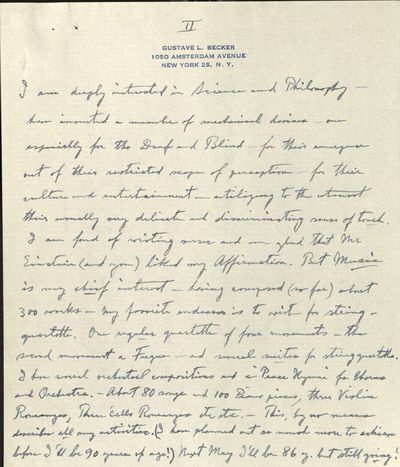 II
GUSTAVE L. BECKER
1050 AMSTERDAM AVENUE
NEW YORK 25, N. Y.
I am deeply interested in Science and Philosophy —
have invented a number of mechanical devices — one
especially for the Deaf and Blind — for their emergence
out of their restricted scope of perception — for their
culture and entertainment — utilizing to the utmost
their usually very delicate and discriminating sense of touch.
I am fond of writing verse and am glad that Mr
Einstein (and you) liked my Affirmation. But Music
is my chief interest — having composed (so far) about
300 works — my favorite endeavor is to write for string-
quartette. One regular quartette of four movements — the
second movement a Fugue — and several suites for string quartette.
I have several orchestral compositions and a "Peace Hymn" for Chorus
and Orchestra. — About 80 songs and 100 Piano pieces, three Violin
Romanzas, Three Cello Romanzas etc etc. — This, by no means
describes all my activities. (I have planned out so much more to achieve
before I'll be 90 years of age!) Next May I'll be 86 y. but still going!